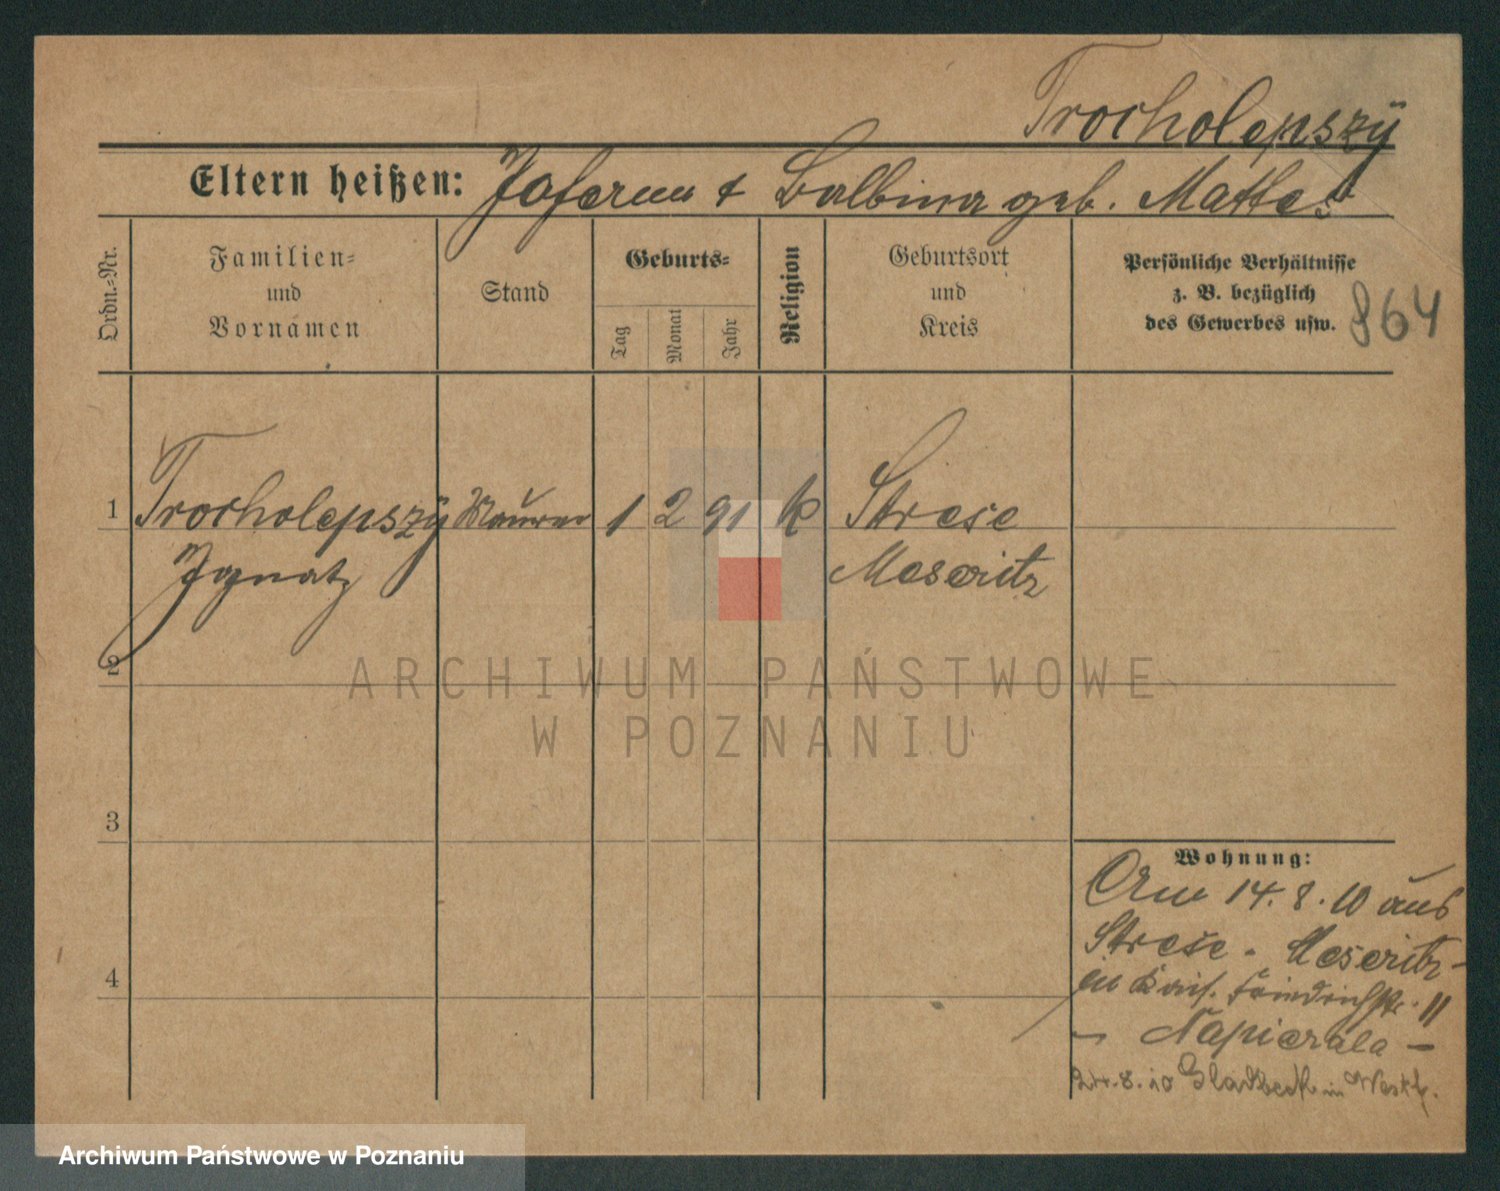 Trocholepszÿ
Eltern heißen: Johann & Balbina geb. Mattes
Ordn.-Nr.
Familien-
und
Vornamen
Stand
Geburts-
Tag
Monat
Jahr
Religion
Geburtsort
und
Kreis
Persönliche Verhältnisse
z. B. bezüglich
des Gewerbes usw.
864
1 Trocholepszÿ Maurer 1 2 91 k Strese
Ignatz Meseritz
2
3
4
Wohnung:
Am 14.8.10 aus
Strese - Meseritz -
in Kais. Friedrichstr. 11
- Napierala -
24.8.10 Gladbeck in Westf.
ARCHIWUM PAŃSTWOWE
W POZNANIU
Archiwum Państwowe w Poznaniu